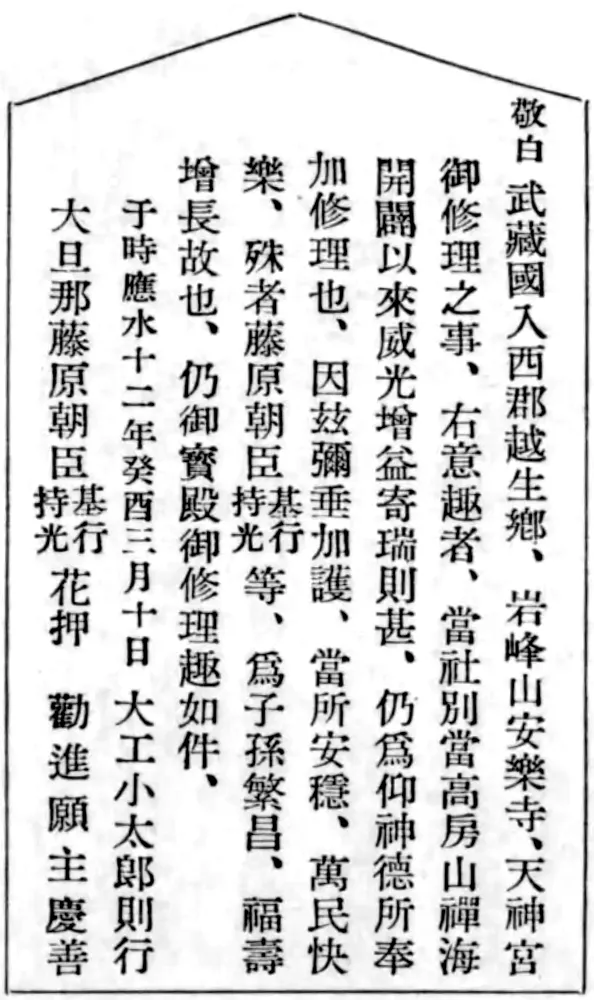 敬白 武藏國入西郡越生鄕、岩峰山安樂寺、天神宮
御修理之事、右意趣者、當社別當高房山禪海
開闢以來威光增益寄瑞則甚、仍爲仰神德所奉
加修理也、因玆彌垂加護、當所安穩、萬民快
樂、殊者藤原朝臣基行持光等、爲子孫繁昌、福壽
增長故也、仍御寶殿御修理趣如件、
于時應永十二年癸酉三月十日 大工小太郞則行
大旦那藤原朝臣基行持光花押 勸進願主慶善